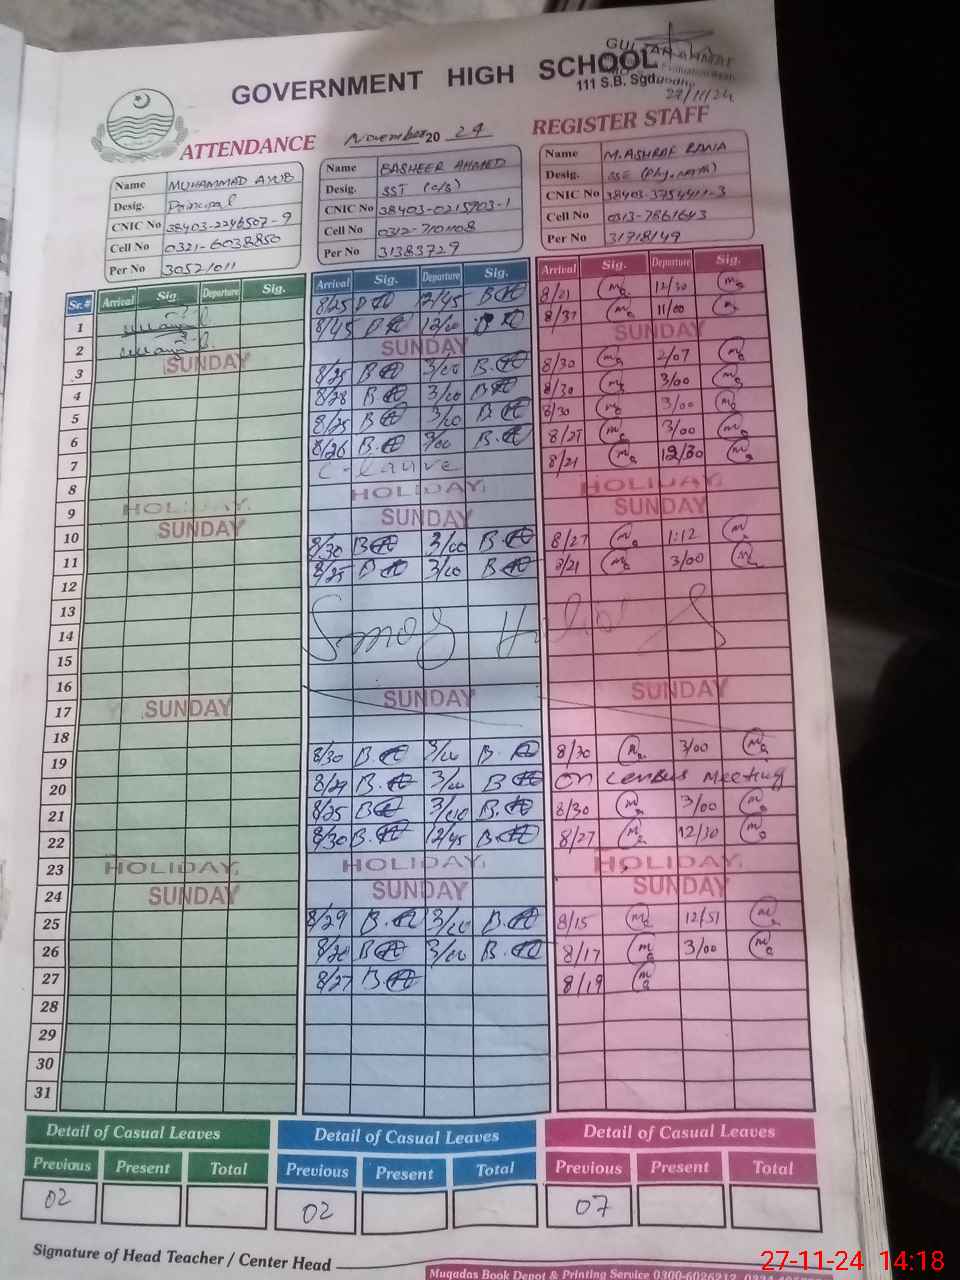 GOVERNMENT HIGH SCHOOL
111 S.B. Sgd
27/11/24
ATTENDANCE November 20 24 REGISTER STAFF
Name MUHAMMAD AYUB
Desig. Principal
CNIC No 38403-2246507-9
Cell No 0321-6038850
Per No 30521011
Name BASHEER AHMED
Desig. SST
CNIC No 38403-0215903-1
Cell No 0312-7101108
Per No 31383729
Name M. ASHRAF RANA
Desig. SSE (Phy. Math)
CNIC No 38403-3754411-3
Cell No 0313-7861643
Per No 31718149
Sr. # Arrival Sig. Departure Sig. Arrival Sig. Departure Sig. Arrival Sig. Departure Sig.
8/25 12/45 8/21 12/30
1 8/45 12/00 8/31 11/00
2 SUNDAY SUNDAY SUNDAY
3 8/25 3/00 8/30 2/07
4 8/28 3/00 8/30 3/00
5 8/25 3/00 8/30 3/00
6 8/26 3/00 8/21 3/00
7 C-leave 8/21 12/30
8 HOLIDAY, HOLIDAY, HOLIDAY,
9 SUNDAY SUNDAY SUNDAY
10 8/30 3/00 8/27 1:12
11 8/25 3/00 8/21 3/00
12
13
14 Smog
15
16
17 SUNDAY SUNDAY SUNDAY
18
19 8/30 3/00 8/30 3/00
20 8/29 3/00 On Census Meeting
21 8/25 3/00 8/30 3/00
22 8/30 12/45 8/27 12/30
23 HOLIDAY, HOLIDAY, HOLIDAY,
24 SUNDAY SUNDAY SUNDAY
25 8/29 3/00 8/15 12/51
26 8/20 3/00 8/17 3/00
27 8/27 8/19
28
29
30
31
Detail of Casual Leaves Detail of Casual Leaves Detail of Casual Leaves
Previous Present Total Previous Present Total Previous Present Total
02 02 07
Signature of Head Teacher / Center Head
Muqadas Book Depot & Printing Service 0300-6026212
27-11-24 14:18